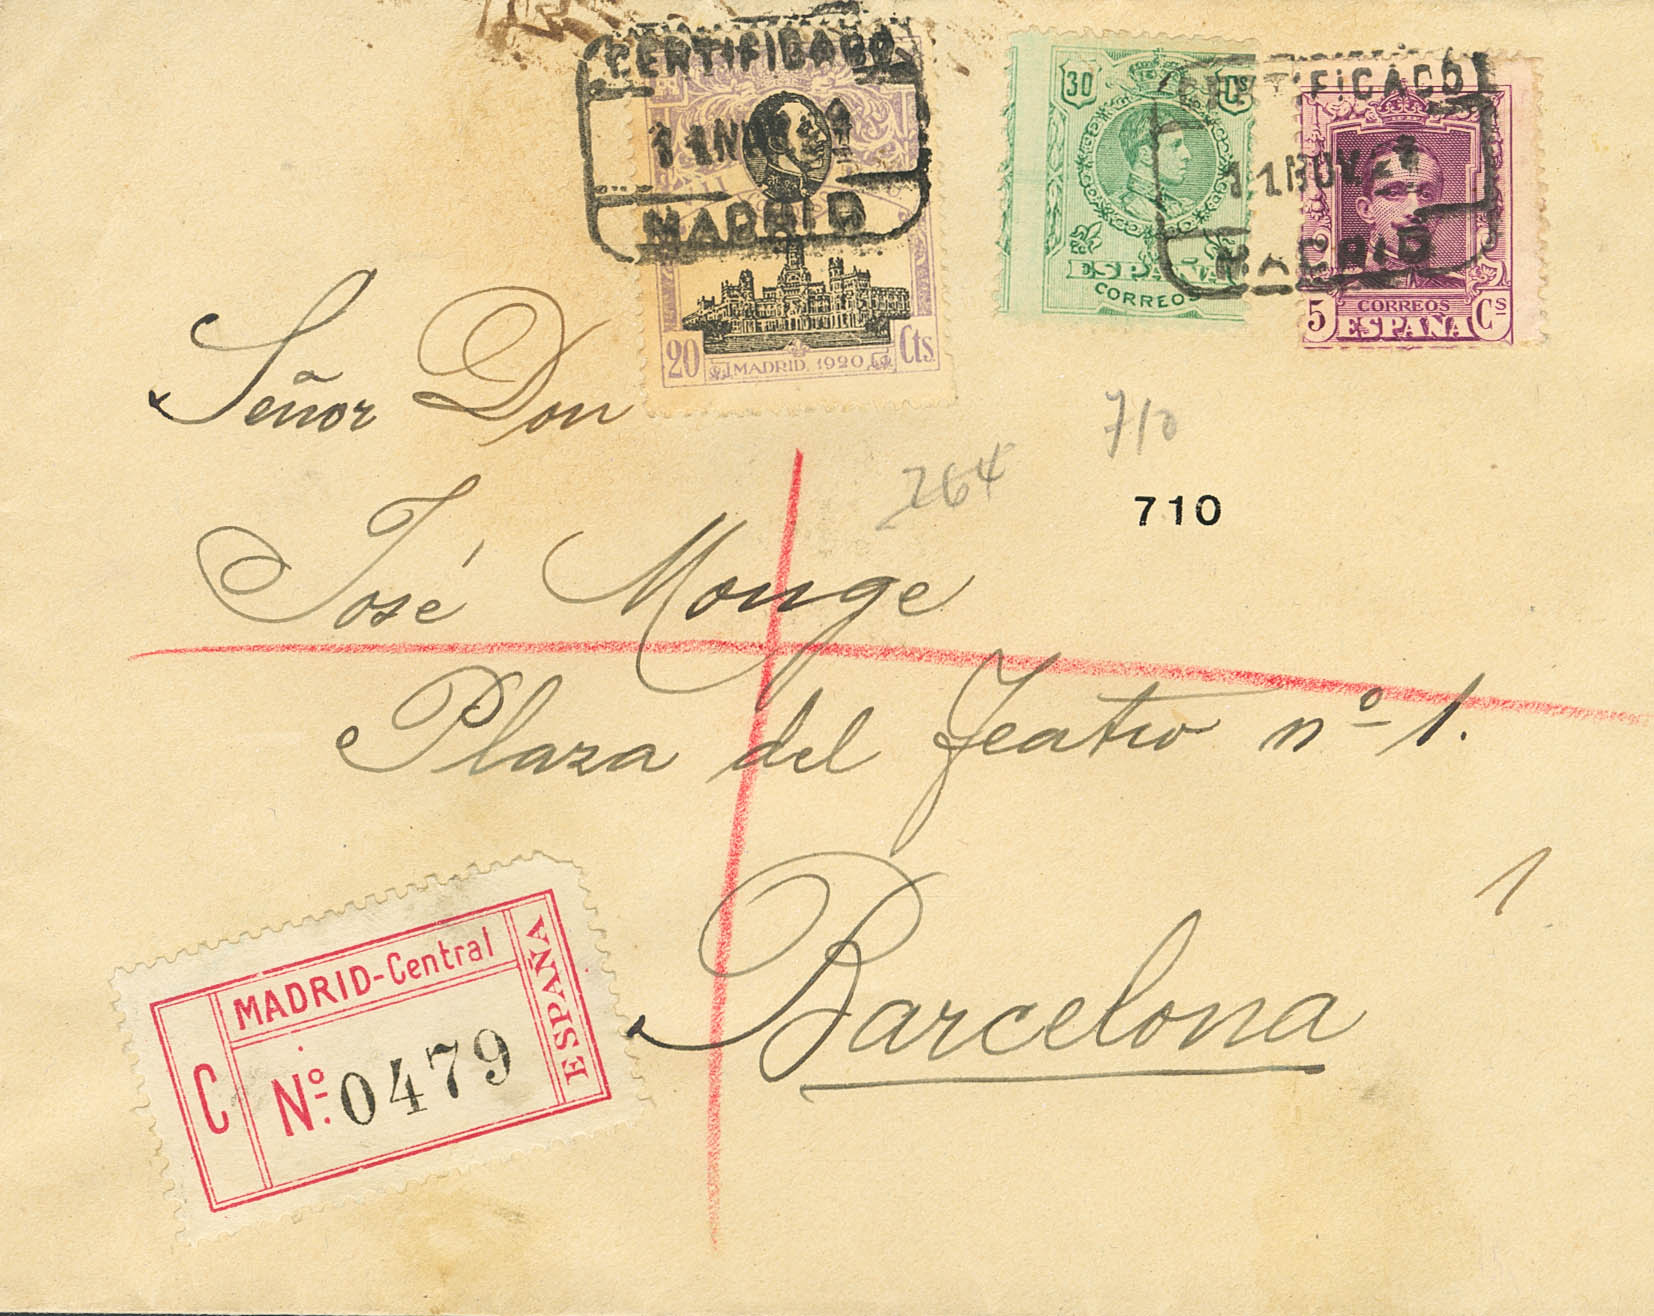 CERTIFICADO
MADRID
CORREOS
20 Cts
MADRID, 1920
30 Cs
ESPAÑA
CORREOS
CERTIFICADO
11 NOV 24
MADRID
5 CORREOS Cs
ESPAÑA
Señor Don
710
264
710
José Monge
Plaza del Teatro nº 1.
1
Barcelona
MADRID-Central
ESPAÑA
C
Nº. 0479